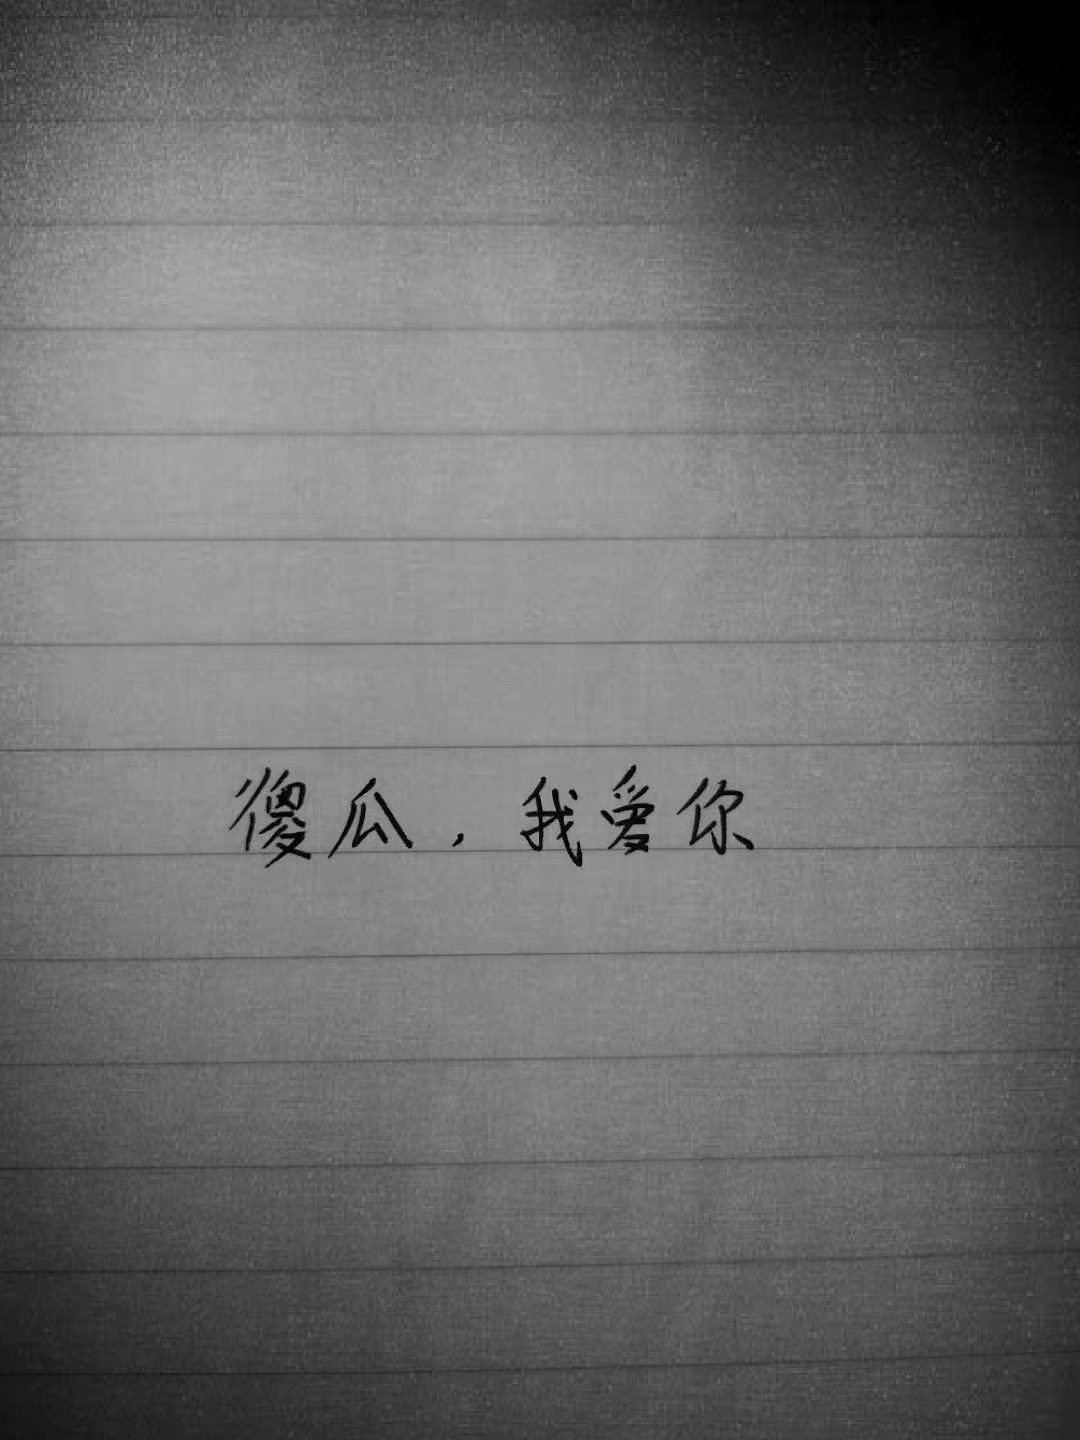 傻瓜，我爱你